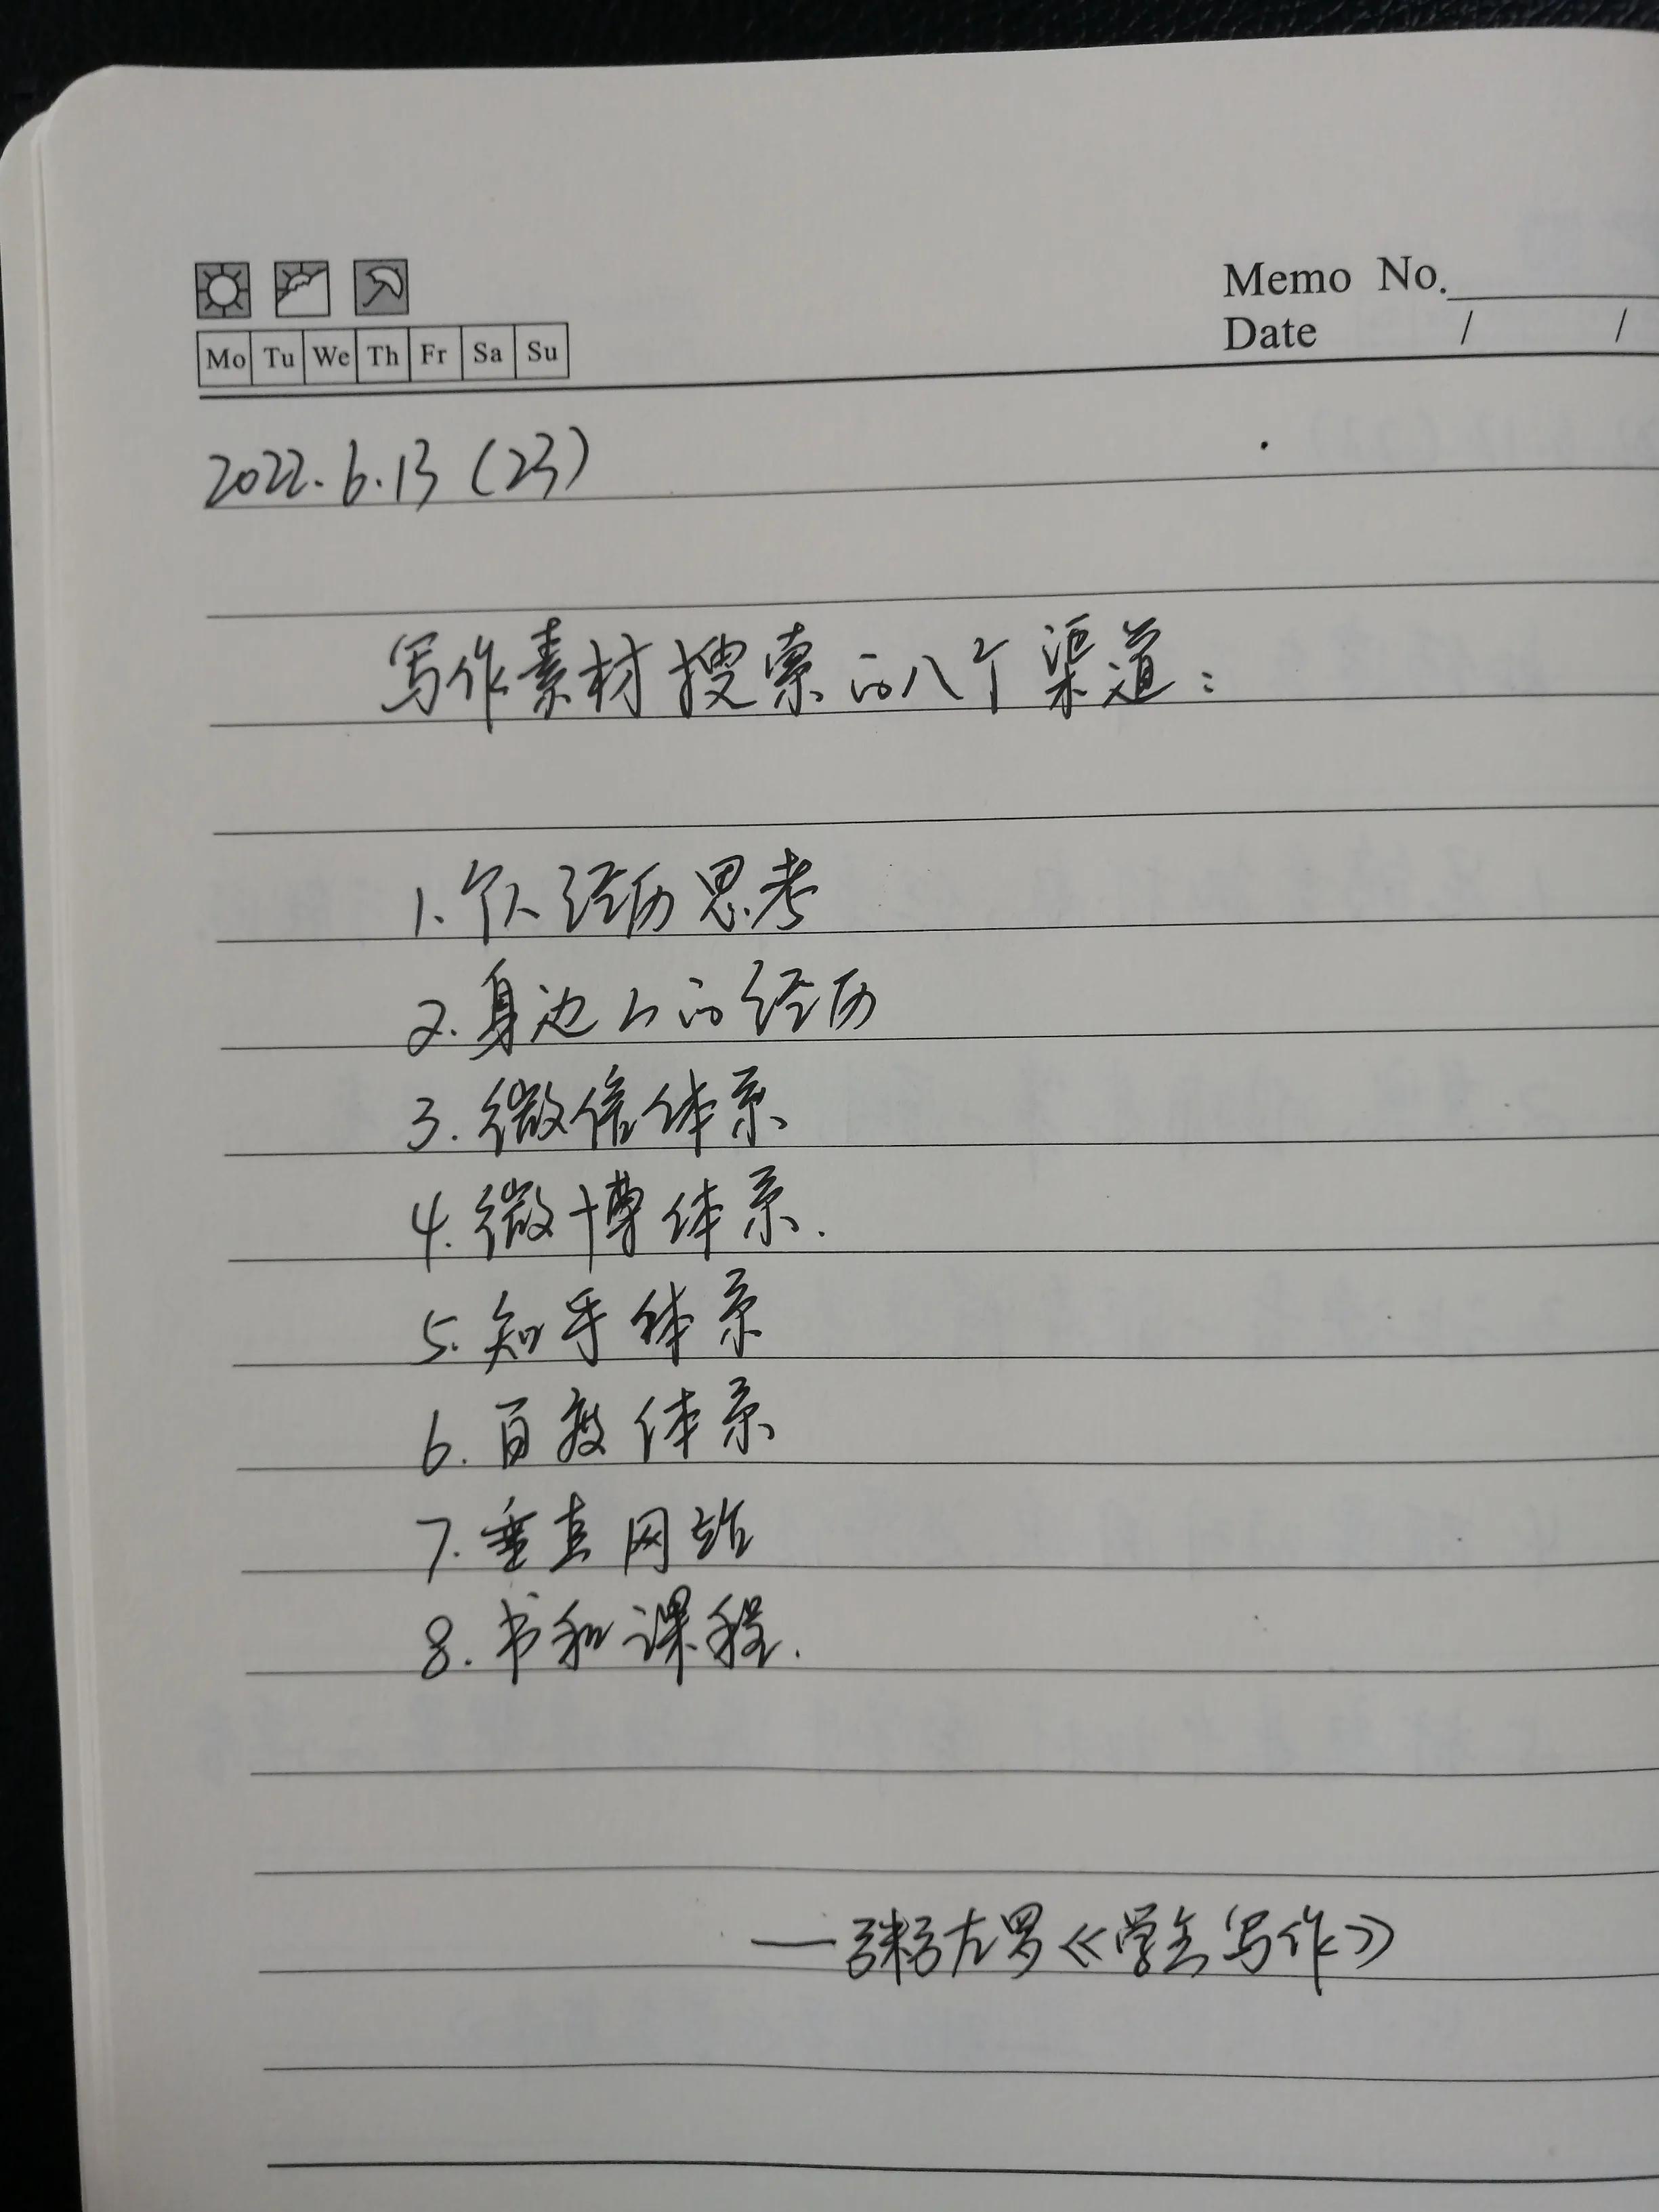 Memo No.
Date / /
Mo Tu We Th Fr Sa Su
2022.6.13（23）
写作素材搜索的八个渠道：
1.个人经历思考
2.身边人的经历
3.微信体系
4.微博体系.
5.知乎体系
6.百度体系
7.垂直网站
8.书和课程.
——粥左罗《学会写作》